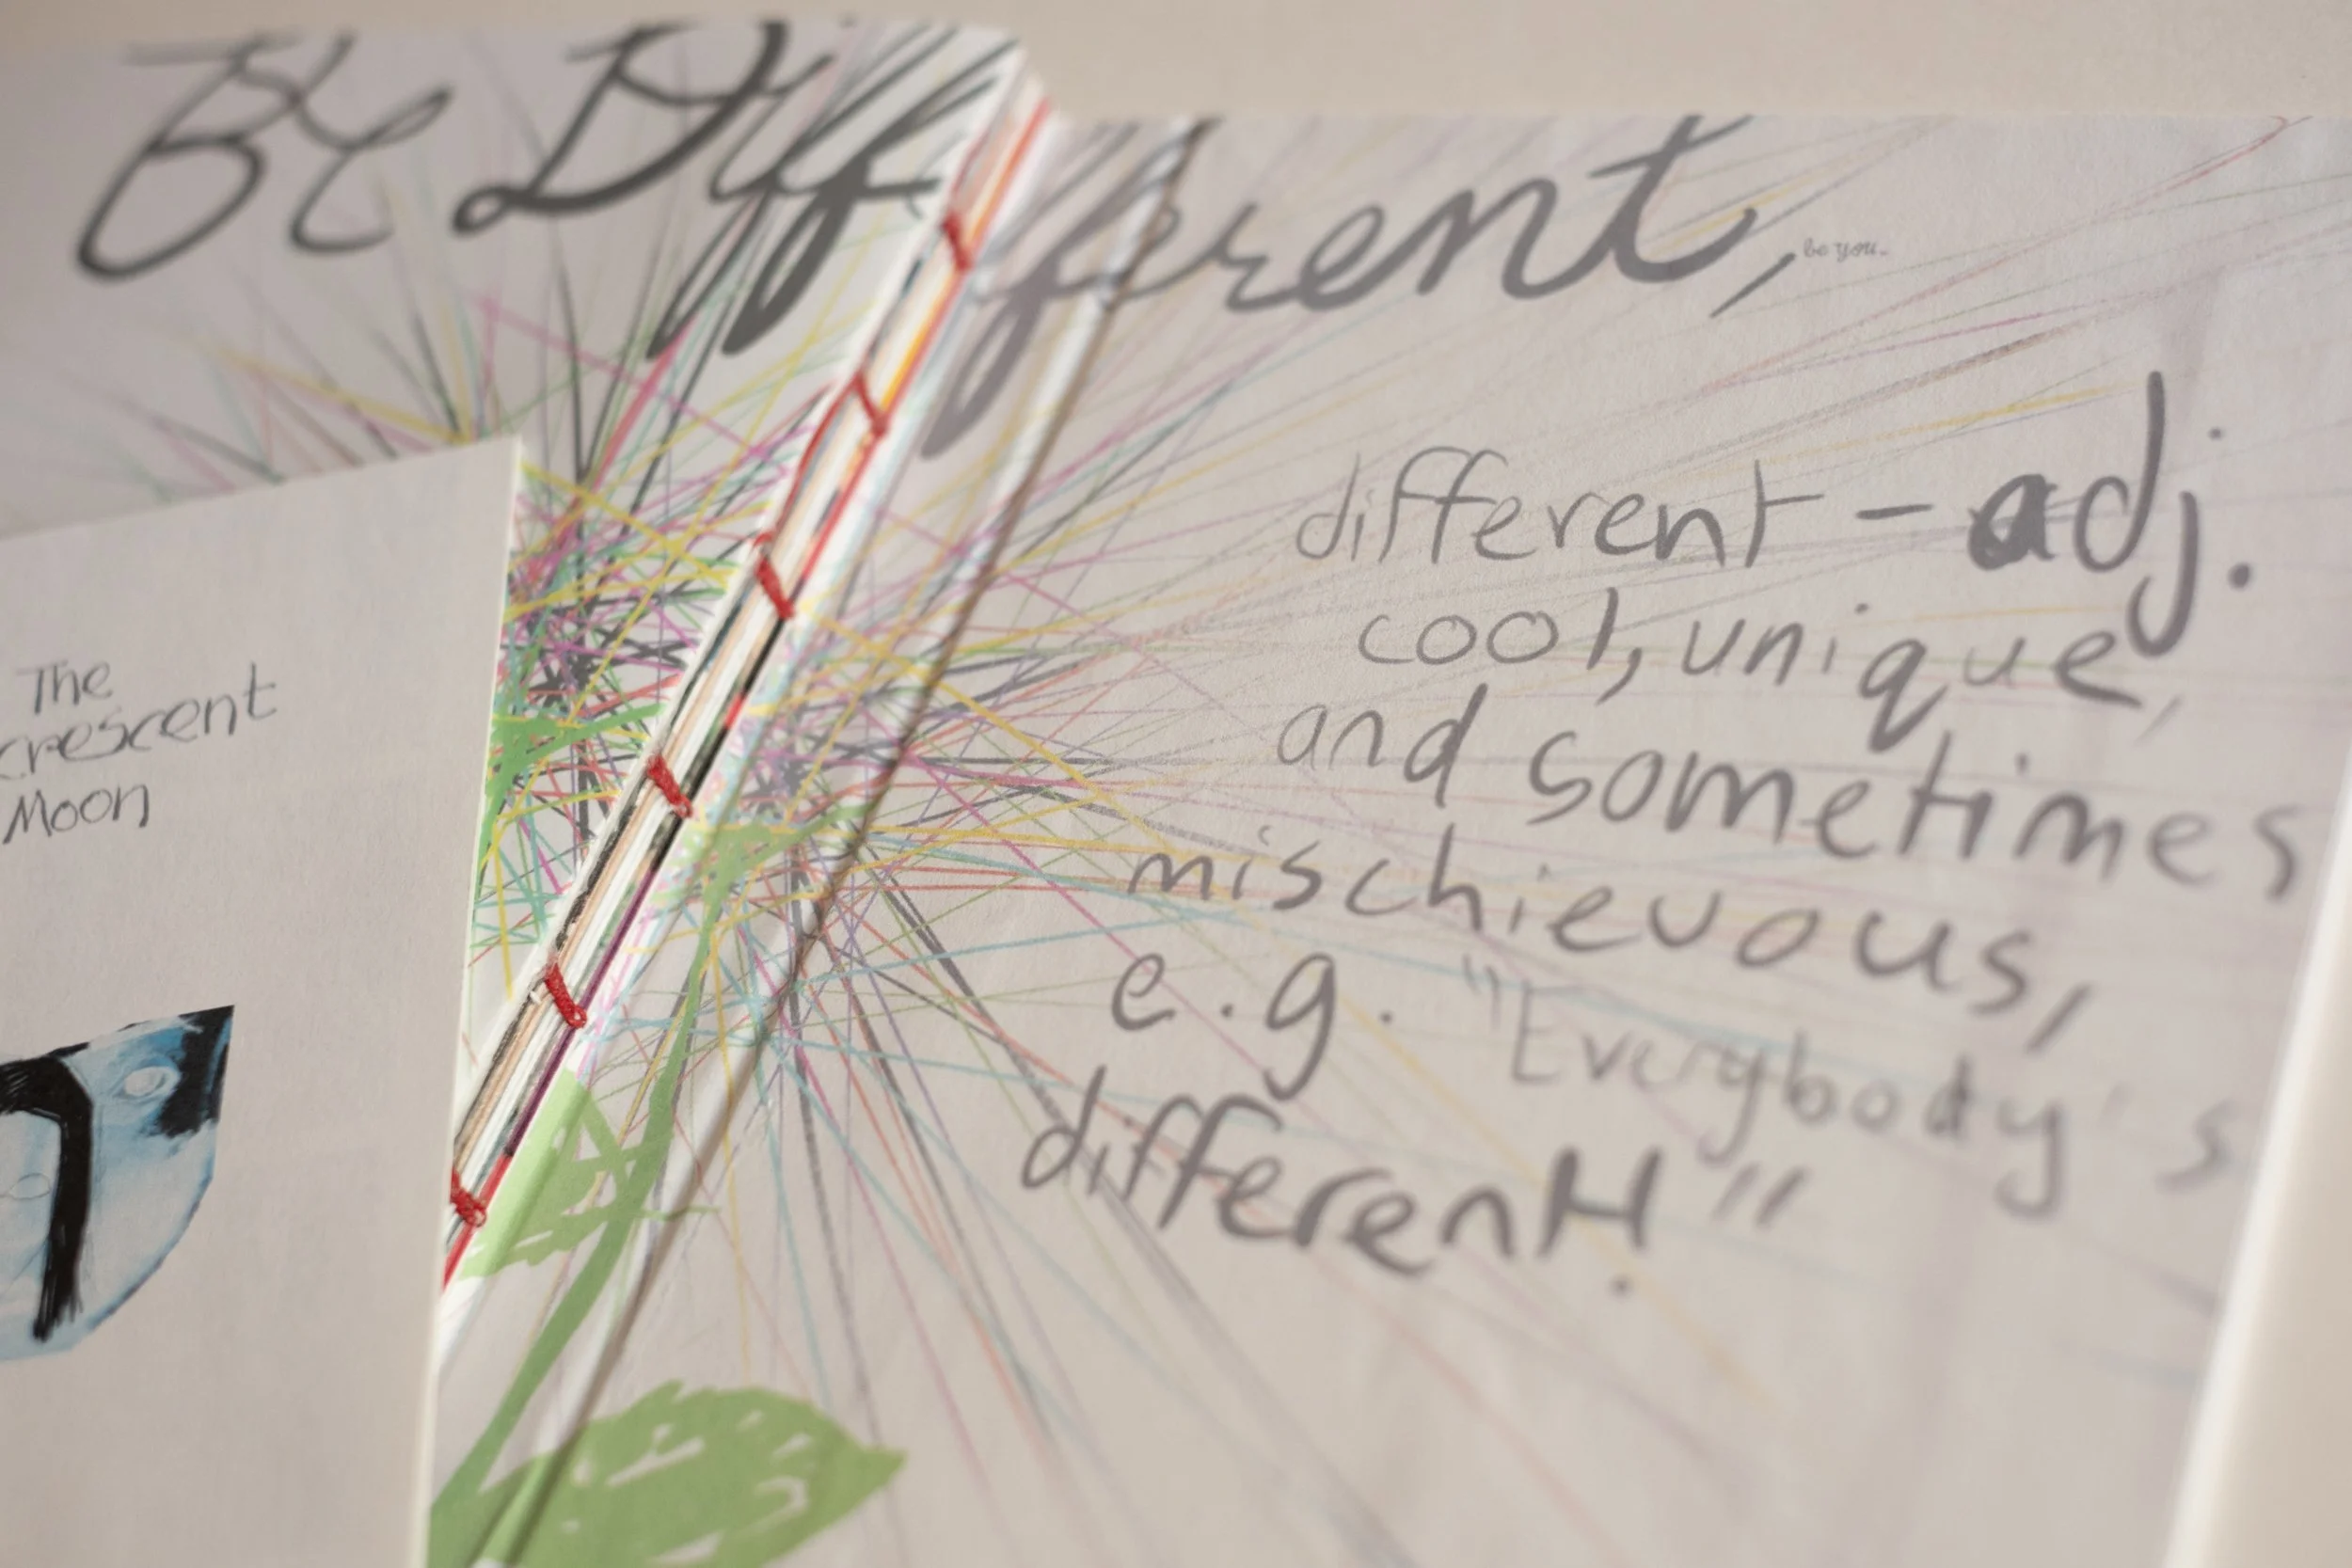 Be Different,
be you.
different - adj.
cool, unique,
and sometimes
mischievous,
e.g. "Everybody's
different!"
The
crescent
Moon